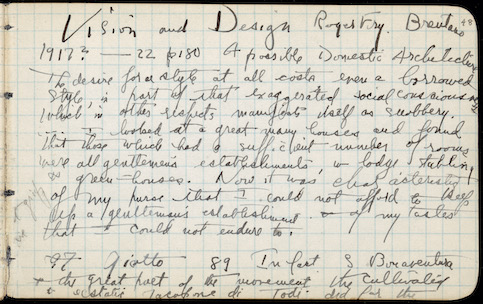 Vision and Design Roger Fry. Brentano
1917? — 22 p180 A possible Domestic Architecture
The desire for a style at all costs even a borrowed
style, is part of that exaggerated social conscious
which in other respects manifests itself as snobbery.
— I looked at a great many houses and found
that those which had a sufficient number of rooms
were all gentlemen's establishments, w lodge stabling
& green-houses. Now it was characteristic
of my purse that I could not afford to keep
up a gentlemen's establishment & of my tastes
that I could not endure to.
97 Giotto — 89 In fact S Bonaventura
& the great poet of the movement, the cultivated
& ecstatic Jacopone di Todi did for the